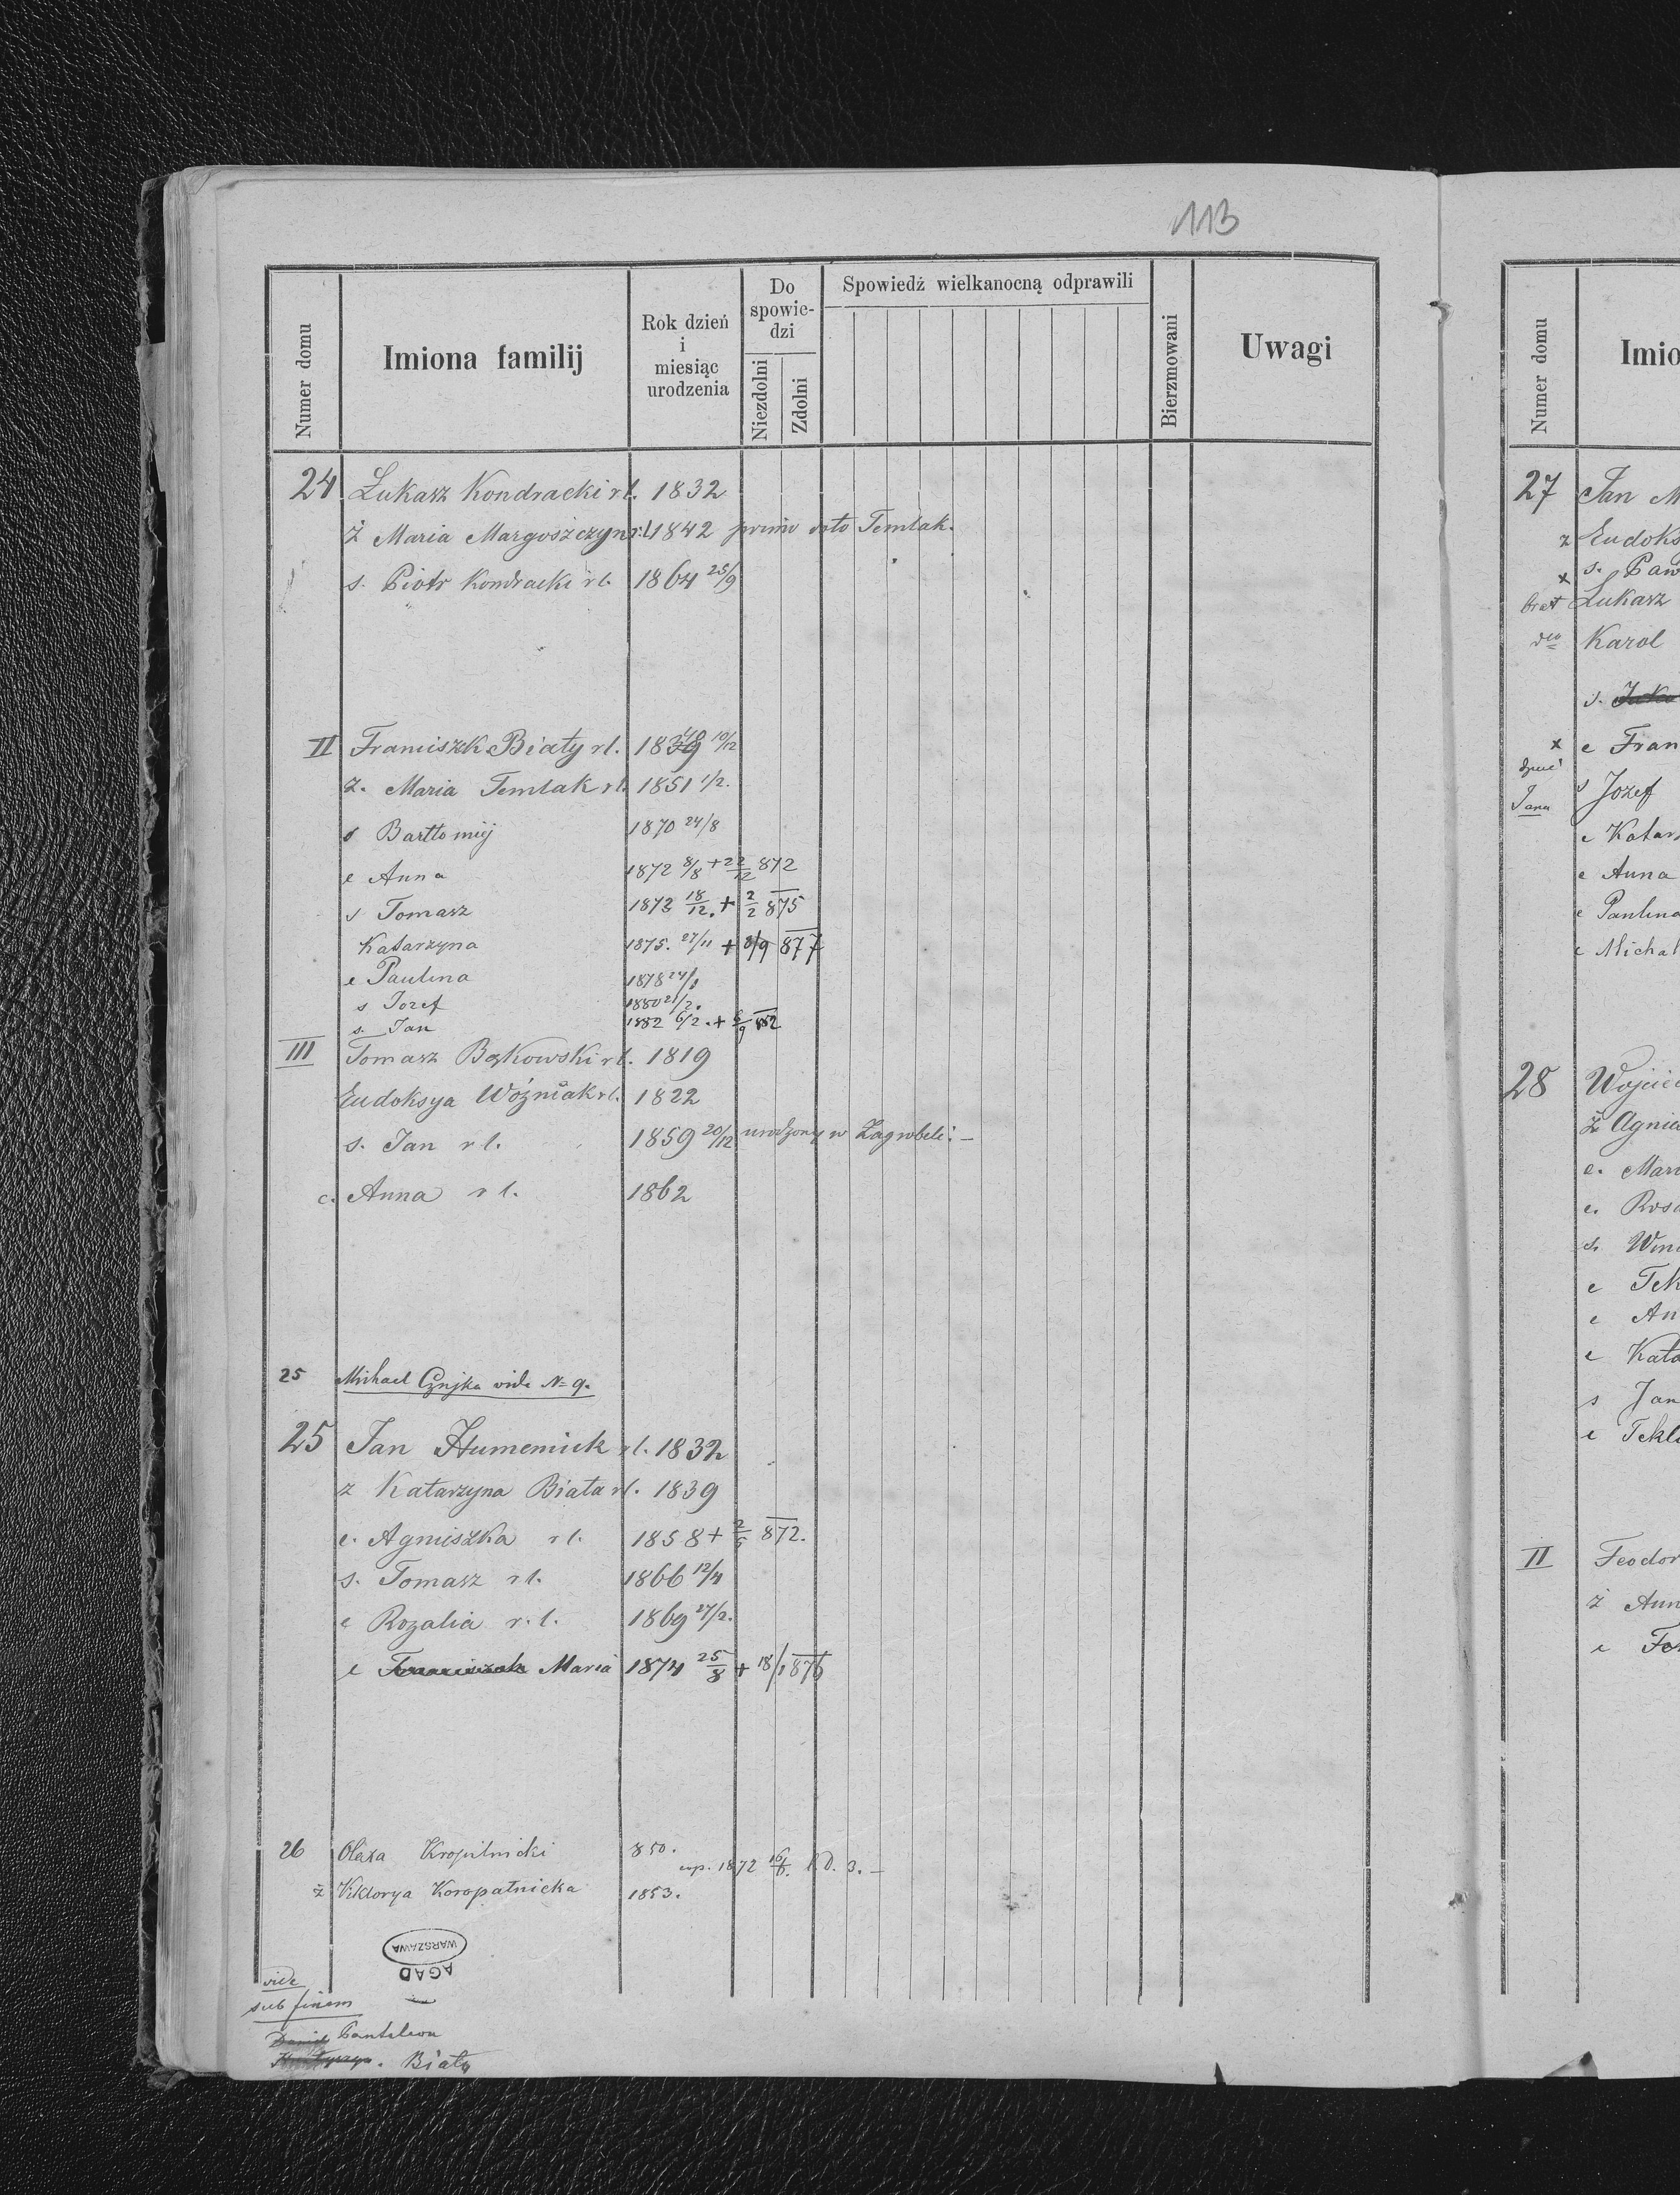 113
Numer domu
Imiona familij
Rok dzień i miesiąc urodzenia
Do spowiedzi
Niezdolni
Zdolni
Spowiedź wielkanocną odprawili
Bierzmowani
Uwagi
24 Łukasz Kondracki rl. 1832
ż Maria Margoszczyn rl 1842 primo voto Temlak.
s. Piotr Kondracki rl. 1864 25/9
II Franciszk Biały rl. 10/12
ż. Maria Temlak rl. 1851 1/2.
s Bartłomiej 1870 24/8
c Anna 1872 8/8 + 22/12 872
s Tomasz 1873 18/12. + 2/2 875
Katarzyna 1875. 27/11 + 8/9 877
c Paulina 1878 24/8
s Jozef 1880 21/2.
s. Jan 1882 6/2. + 6/9 882
III Tomasz Bąkowski rl. 1819
Eudoksya Woźniak rl. 1822
s. Jan rl. 1859 20/12 urodzony w Zagrobeli: –
c. Anna rl. 1862
25 Michael vide N= 9.
25 Jan Humeniuk rl. 1832
ż Katarzyna Biała rl. 1839
c. Agniszka rl. 1858 + 2/5 872.
s. Tomasz rl. 1866 12/4
c Rozalia r. l. 1869 27/2.
c Franciszek Maria 1874 25/8 + 18/1 876
26 Olexa Kropilnicki 850.
cop. 1872 16/6. 3. –
ż Viktorya Koropatnicka 1853.
WARSZAWA
AGAD
vide
sub finem
Pantaleon
Biały
Numer domu
Imio
27 Jan M
ż Eudoks
x s. Paw
brat Łukasz
dto Karol
s.
x c Fran
dzieci s Jozef
Jana
c Katar
c Anna
c Paulina
c Michal
28 Wojcie
ż Agnie
c. Mari
c. Rosa
s. Winc
c Tek
c An
c Kata
s Jan
c Tekl
II Feodor
ż Ann
c